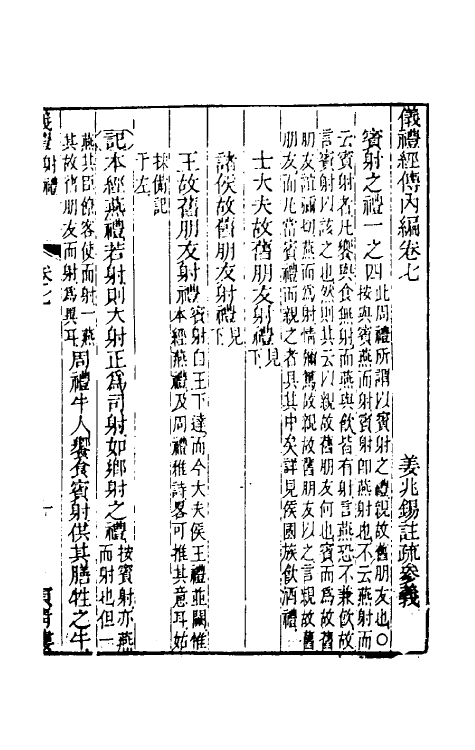 儀禮經傳內編卷七
姜兆錫註疏參義
賓射之禮一之四 此周禮所謂以賓射之禮親故舊朋友也○
按與賓燕而射賓射即燕射也不云燕射而
云賓射者凡饗與食無射而燕與飲皆有射言燕恐不兼飲故
言賓射以該之也然則其云以親故舊朋友何也賓而為故舊
朋友誼彌切燕而為射情彌篤故親故舊朋友以之言親故舊
朋友而凡當賓禮而親之者具其中矣詳見侯國族飲酒禮
士大夫故舊朋友射禮 見下
諸侯故舊朋友射禮 見下
王故舊朋友射禮 賓射自王下達而今大夫侯王禮並闕惟
本經燕禮及周禮雅詩畧可推其意耳姑
採備記
于左
記本經燕禮若射則大射正為司射如鄉射之禮 按賓射亦燕
而射也但一
燕其臣僚客使而射一燕
其故舊朋友而射為異耳 周禮牛人饗食賓射供其膳牲之牛
儀禮
卷七
一